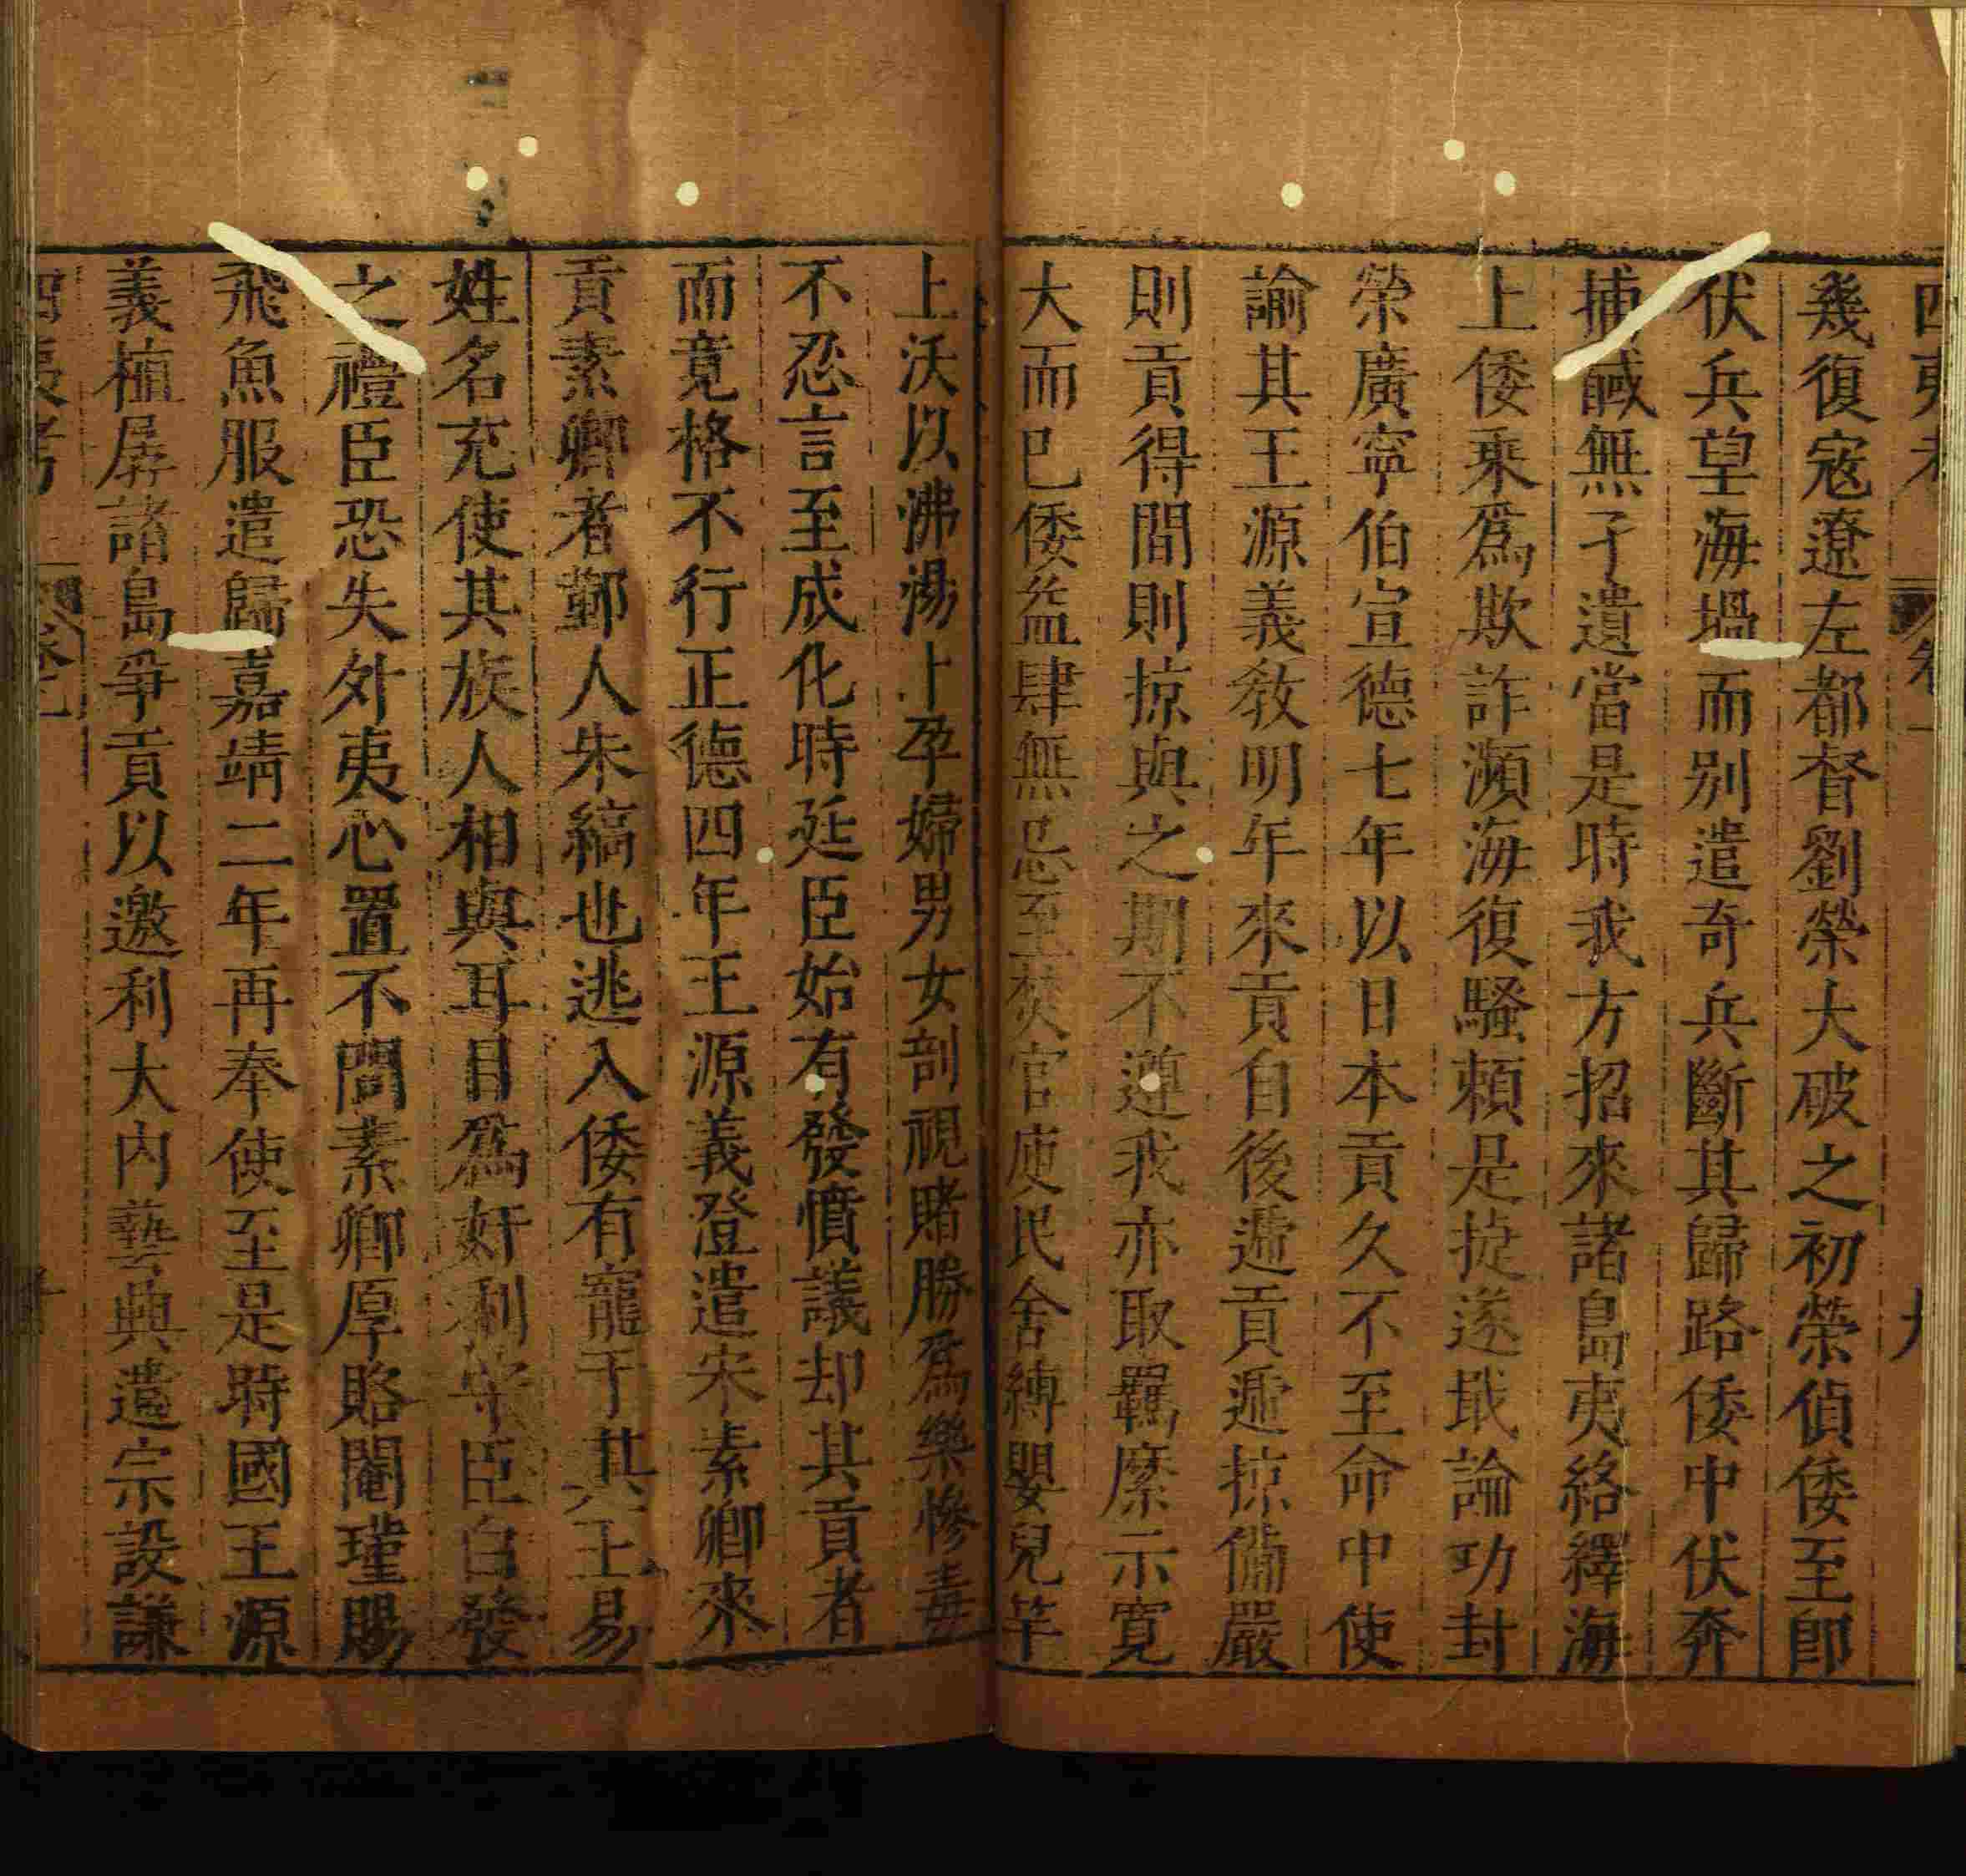 幾復寇遼左都督劉榮大破之初榮偵倭至郎
伏兵望海堝而别遣奇兵斷其歸路倭中伏奔
捕馘無孑遺當是時我方招來諸島夷絡繹海
上倭乘爲欺詐瀕海復騷頼是捷遂戢論功封
榮廣寧伯宣德七年以日本貢久不至命中使
諭其王源義敎明年來貢自後遞貢遞掠備嚴
則貢得間則掠與之期不遵我亦取羈縻示寬
大而巳倭益肆無忌至焚官庾民舍縛嬰兒竿
上沃以沸湯卜孕婦男女剖視賭勝爲樂慘毒
不忍言至成化時廷臣始有發憤議却其貢者
而竟格不行正德四年王源義澄遣宋素卿來
貢素卿者鄞人朱縞也逃入倭有寵于其王易
姓名充使其族人相與耳目爲奸利守臣白發
之禮臣恐失外夷心置不問素卿厚賂閹瑾賜
飛魚服遣歸嘉靖二年再奉使至是時國王源
義植孱諸島爭貢以邀利大内藝興遣宗設謙